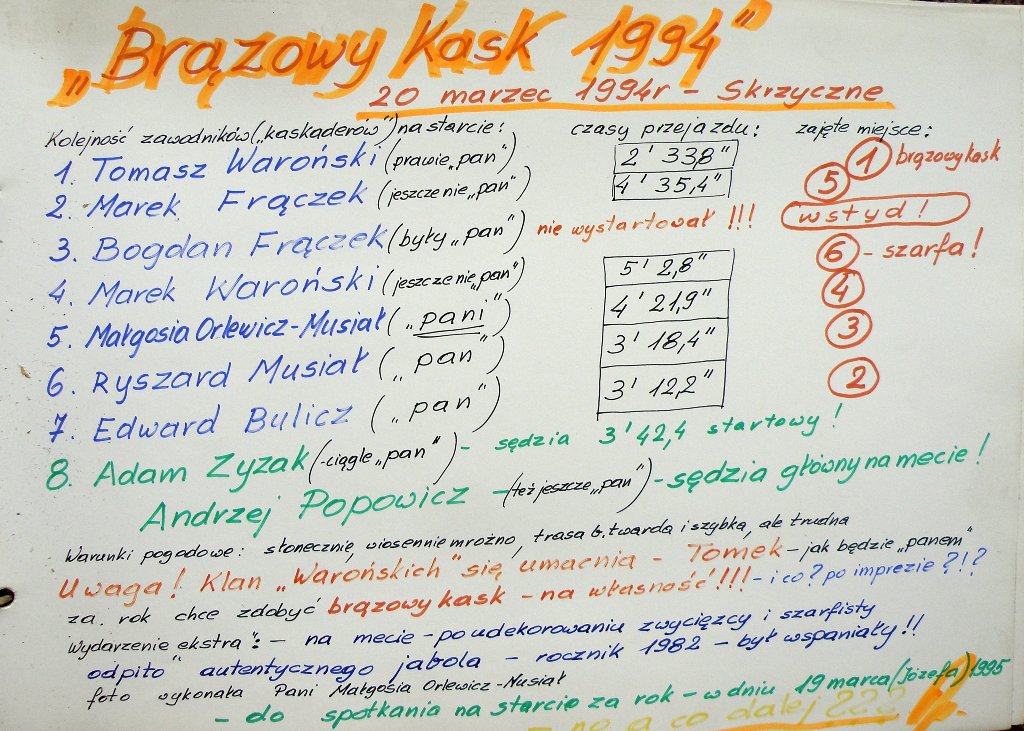 „Brązowy Kask 1994"
20 marzec 1994r - Skrzyczne
Kolejność zawodników („kaskaderów") na starcie: czasy przejazdu: zajęte miejsce:
1. Tomasz Waroński (prawie „pan") 2' 33,8" 1 brązowy kask
2. Marek Frączek (jeszcze nie „pan") 4' 35,4" 5
3. Bogdan Frączek (były „pan") nie wystartował !!! wstyd!
4. Marek Waroński (jeszcze nie „pan") 5' 2,8" 6 - szarfa!
5. Małgosia Orlewicz-Musiał („pani") 4' 21,9" 4
6. Ryszard Musiał („pan") 3' 18,4" 3
7. Edward Bulicz („pan") 3' 12,2" 2
8. Adam Zyzak (-ciągle „pan") - sędzia 3'42,4 startowy!
Andrzej Popowicz - (też jeszcze „pan") - sędzia główny na mecie!
Warunki pogodowe: słonecznie, wiosennie mroźno, trasa b. twarda i szybka, ale trudna
Uwaga! Klan „Warońskich" się umacnia - Tomek - jak będzie „panem"
za rok chce zdobyć brązowy kask - na własność!!! - i co? po imprezie?!?
Wydarzenie ekstra": - na mecie - po udekorowaniu zwycięzcy i szarfisty
odpito" autentycznego jabola - rocznik 1982 - był wspaniały!!
foto wykonała Pani Małgosia Orlewicz-Musiał
- do spotkania na starcie za rok - w dniu 19 marca (Józefa) 1995
- no a co dalej ???